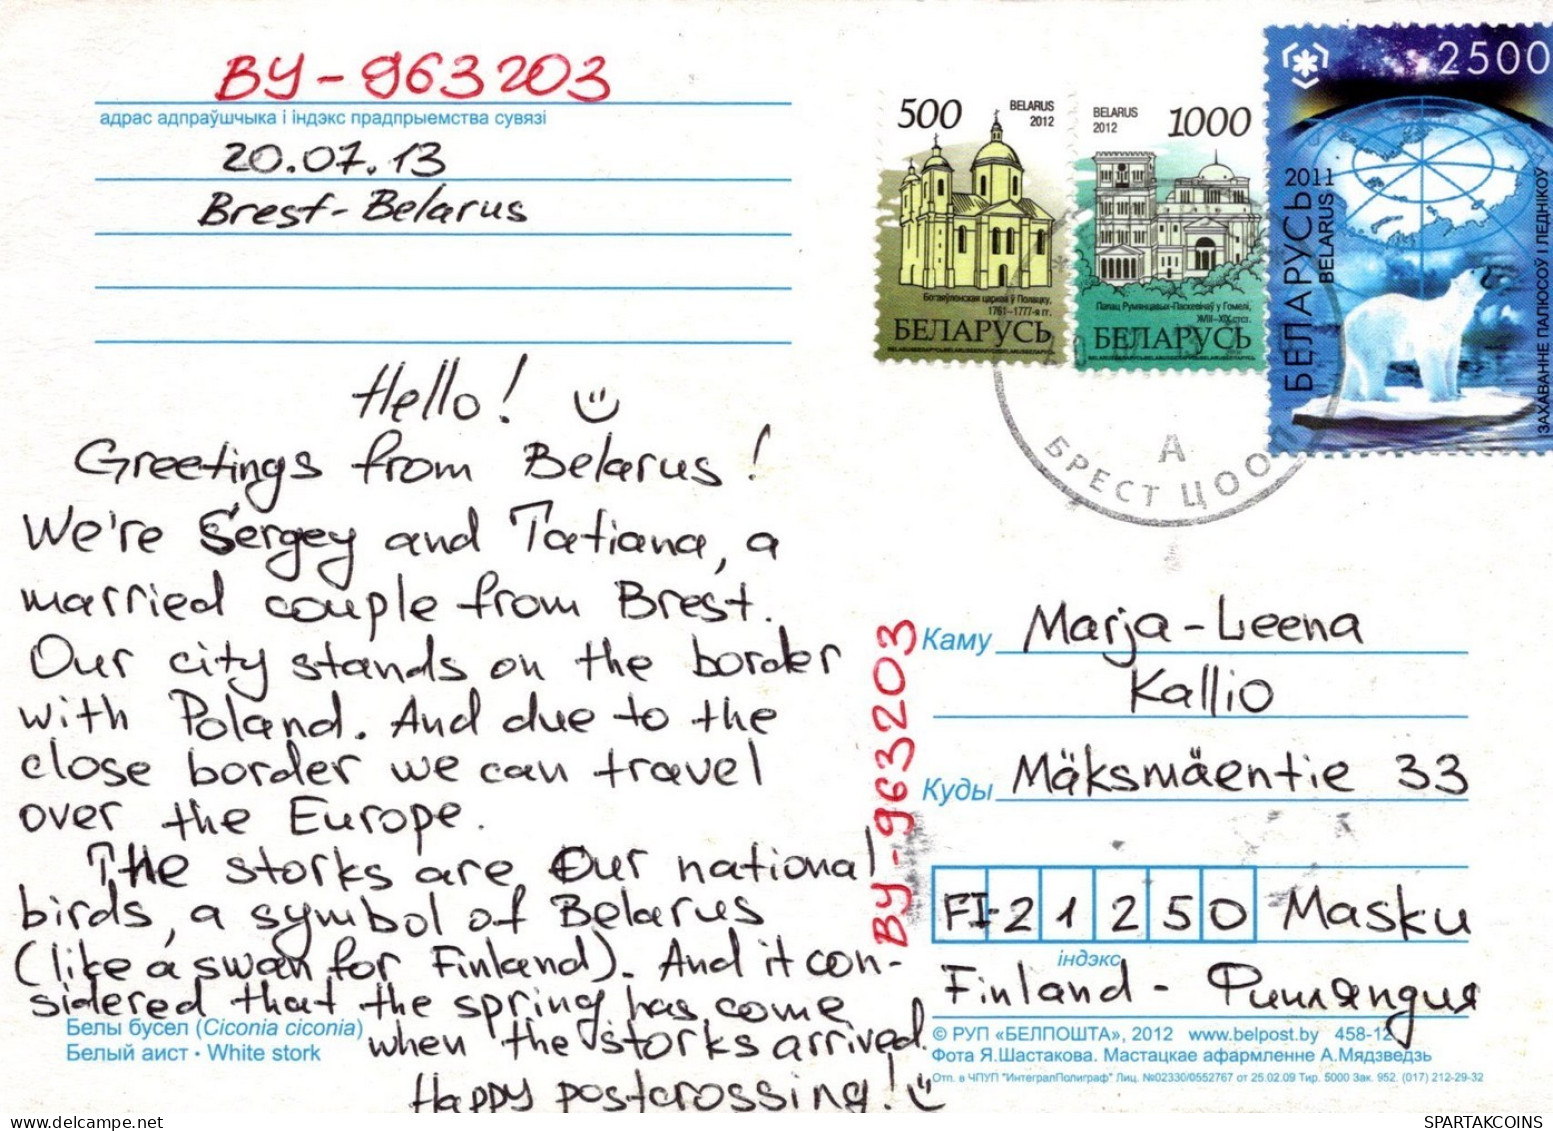 BY-963203
адрас адпраўшчыка і індэкс прадпрыемства сувязі
20.07.13
Brest-Belarus
500 BELARUS 2012
Богаяўленская царква ў Полацку,
1761–1777-я гг.
БЕЛАРУСЬ
BELARUS 2012 1000
Палац Румянцавых-Паскевічаў у Гомелі,
XVIII–XIX стст.
БЕЛАРУСЬ
2500
2011
БЕЛАРУСЬ
BELARUS
ЗАХАВАННЕ ПАЛЮСОЎ І ЛЕДНІКОЎ
А
БРЕСТ ЦОО
Hello!
Greetings from Belarus!
We're Sergey and Tatiana, a
married couple from Brest.
Our city stands on the border
with Poland. And due to the
close border we can travel
over the Europe.
The storks are our national
birds, a symbol of Belarus
(like a swan for Finland). And it con-
sidered that the spring has come
when the storks arrived.
Happy postcrossing!
Белы бусел (Ciconia ciconia)
Белый аист • White stork
BY-963203
Каму Marja-Leena
Kallio
Куды Mäksmäentie 33
FI-21250 Masku
індэкс
Finland - Финляндия
© РУП «БЕЛПОШТА», 2012 www.belpost.by 458-12
Фота Я.Шастакова. Мастацкае афармленне А.Мядзведзь
Отп. в ЧПУП "ИнтегралПолиграф" Лиц. №02330/0552767 от 25.02.09 Тир. 5000 Зак. 952. (017) 212-29-32
SPARTAKCOINS